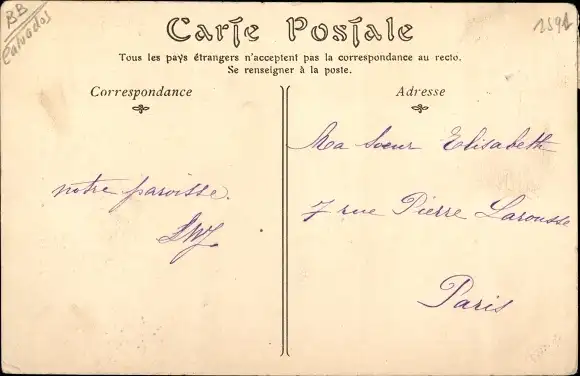 BB
Calvados
1591
Carte Postale
Tous les pays étrangers n'acceptent pas la correspondance au recto.
Se renseigner à la poste.
Correspondance
Adresse
notre paroisse.
Ma Sœur Elisabeth
7 rue Pierre Larousse
Paris